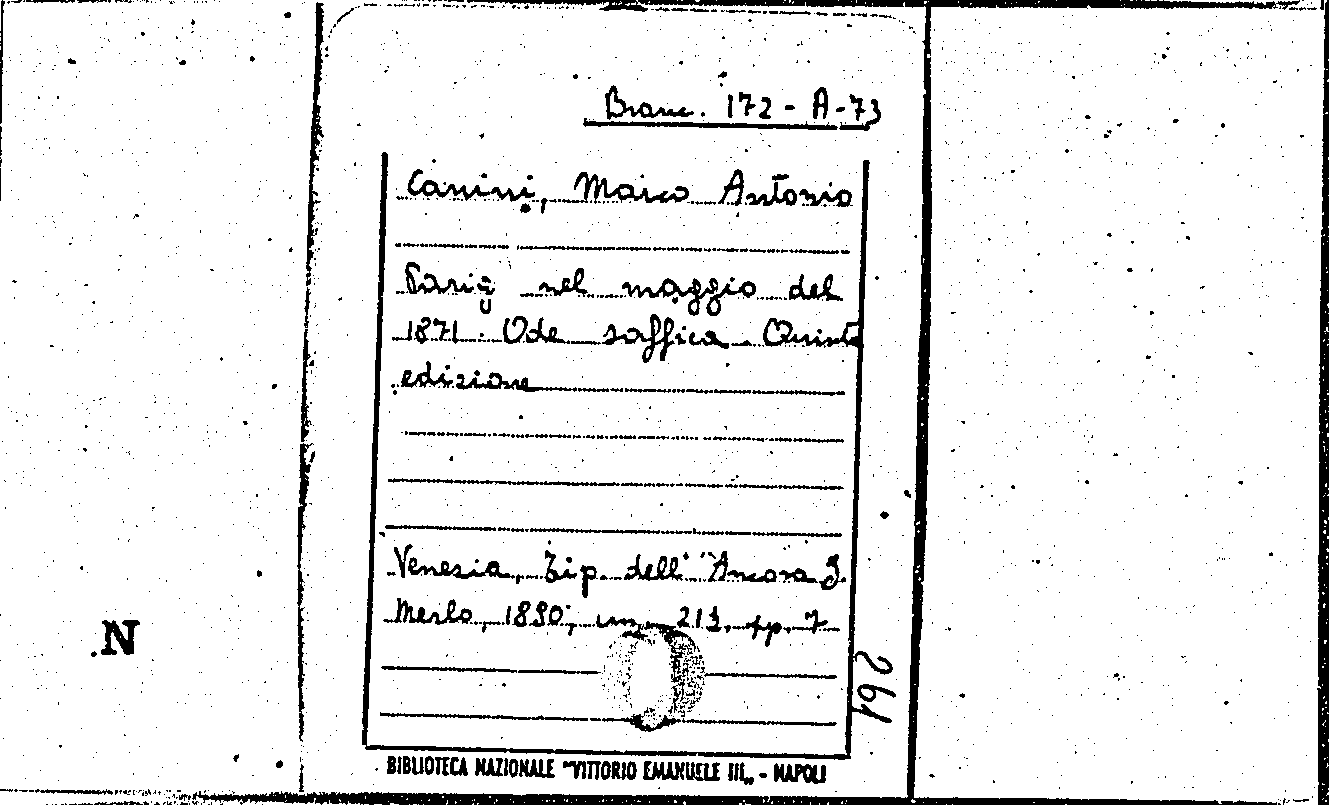 Branc. 172 - A - 73
Canini, Marco Antonio
Parigi nel maggio del
1871. Ode saffica. Quinta
edizione
Venezia, Tip. dell' "Ancora" J.
Merlo, 1890; cm. 21½. pp. 7
261
N
BIBLIOTECA NAZIONALE "VITTORIO EMANUELE III„ - NAPOLI